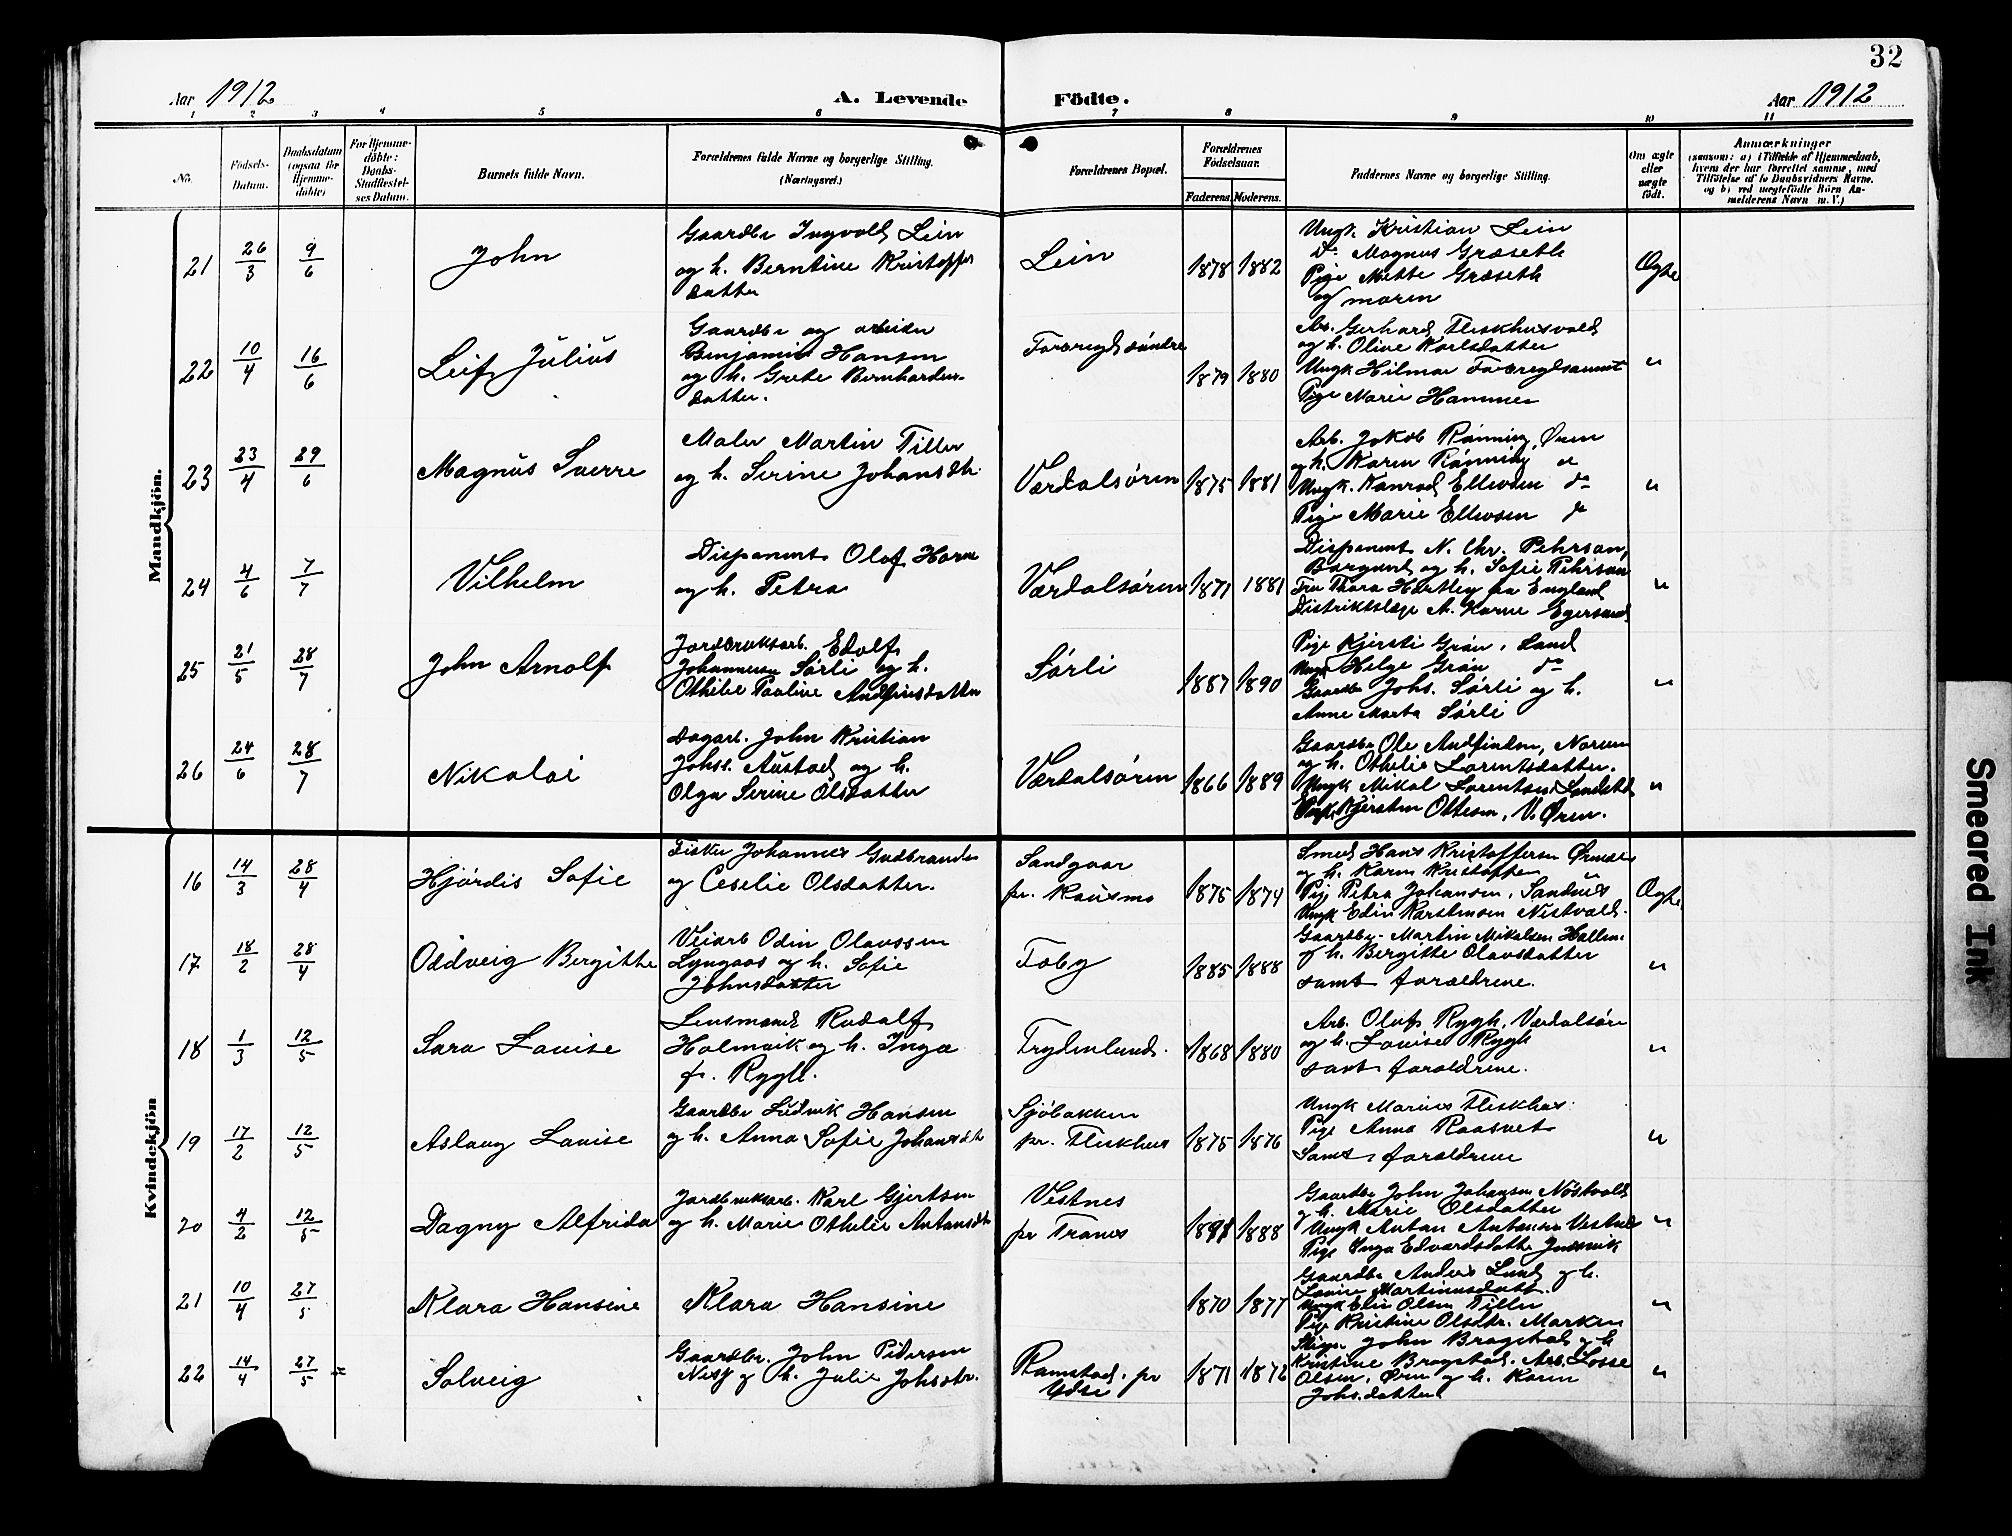 32
Aar 1912
A. Levende Födte.
Aar 1912
1 2 3 4 5 6 7 8 9 10 11
No.
Födsels-Datum.
Daabsdatum (ogsaa for Hjemmedöbte)
For Hjemmedöbte: Daabs-Stadfæstelses Datum.
Barnets fulde Navn.
Forældrenes fulde Navne og borgerlige Stilling. (Næringsvei.)
Forældrenes Bopæl.
Forældrenes Födselsaar.
Faderens. Moderens.
Faddernes Navne og borgerlige Stilling.
Om ægte eller uægte födt.
Anmærkninger
(saasom: a) i Tilfælde af Hjemmedaab, hvem der har forrettet samme, med Tilföielse af to Daabsvidners Navne. og b) ved uægtefödte Börn Anmelderens Navn m. V.)
Mandkjön.
21 26/3 9/6 John
Gaardbr Ingvald Lein
og h. Berntine Kristoffer
datter
Lein 1878 1882
Ungk. Kristian Lein
Do Magnus Græseth
Pige Mette Græseth
og moren
Ægte
22 10/4 16/6 Leif Julius
Gaardbr og arbeider
Benjamin Hansen
og h. Grete Bernhardus-
datter.
1879 1880
Arb. Gerhard Fleskhusvald
og h. Olive Karlsdatter
Ungk Hilmar
Pige Marie Hammer
"
23 23/4 29/6 Magnus Sverre
Maler Martin Tiller
og h. Serine Johansdtr.
Værdalsøren 1875 1881
Arb. Jakob Rønning, Øren
og h. Karen Rønning "
Ungk. Konrad Ellevsen do
Pige Marie Ellevsen do
"
24 4/6 7/7 Vilhelm
Disponent Olaf Havne
og h. Petra
Værdalsøren 1871 1881
Disponent N. Chr. Pehrson,
Borgund og h. Sofie Pehrson
Fru Thora Hartley fra England
Distriktslæge A. Havne Egersund
"
25 21/5 28/7 John Arnolf
Jordbruksarb. Edolf
Johannesen Sørli og h.
Othilie Pauline Andfinsdatter
Sørli 1887 1890
Pige Kjersti Grøn, Sand
Ungk Helge Grøn do
Gaardbr Johs. Sørli og h.
Anne Marta Sørli
"
26 24/6 28/7 Nikolai
Dagarb. John Kristian
Johs. Austad og h.
Olga Serine Olsdatter
Værdalsøren 1866 1889
Gaardbr Ole Andfindsen, Norum
og h. Othelie Lorentsdatter.
Ungk Mikal Lorentsen
Kjersten Ottesen, V. Øren.
"
Kvindekjön
16 14/3 28/4 Hjördis Sofie
Fisker Johannes Gudbrandsen
og Ceselie Olsdatter.
Sandgaar
pr. Rausmo
1875 1874
Smed Hans Kristoffersen
og h. Karen Kristoffer
Pige Petra Johansen, Sandnes
Ungk Edin Karstensen Nestvold.
Ægte
17 18/2 28/4 Oddveig Bergithe
Veiarb Odin Olaussen
Lyngaas og h. Sofie
Johnsdatter
Foby 1885 1888
Gaardbr. Martin Mikalsen Hallem
og h. Bergitte Olavsdatter
samt forældrene.
"
18 1/3 12/5 Sara Louise
Lensmand Rudolf
Holmvik og h. Inga
f. Rygh.
Frydenlund. 1868 1880
Arb. Oluf Rygh, Værdalsøre
og h. Louise Rygh
samt forældrene.
"
19 17/2 12/5 Aslaug Louise
Gaardbr Ludvik Hansen
og h. Anna Sofie Johansdtr
Sjöbakken
pr. Fleskhus
1875 1876
Ungk Marius Fleskhus
Pige Anna Raasvet
Samt forældrene
"
20 4/2 12/5 Dagny Alfrida
Jordbruksarb. Karl Gjertsen
og h. Marie Othelie Antonsdtr
Vestnes
pr Tranes
1891 1888
Gaardbr John Johansen Nöstvold
og h. Marie Olsdatter
Ungk Anton Antonsen Vestnes
Pige Inga Edvardsdatter
"
21 10/4 27/5 Klara Hansine
Klara Hansine
1870 1877
Gaardbr Anders Lund og h.
Louise Martinusdatt.
Ungk Elis Olsen Tiller
Pige Kristine Olsdtr. Marken
"
22 14/4 27/5 Solveig
Gaardbr. John Pedersen
og h. Julie Johsdtr.
Ramstad. pr
Ydse
1871 1872
John Bragstad og h
Kristine Bragstad. Arb. Losse
Olsen, Øren og h. Karen
Johs.datter
"
Smeared Ink